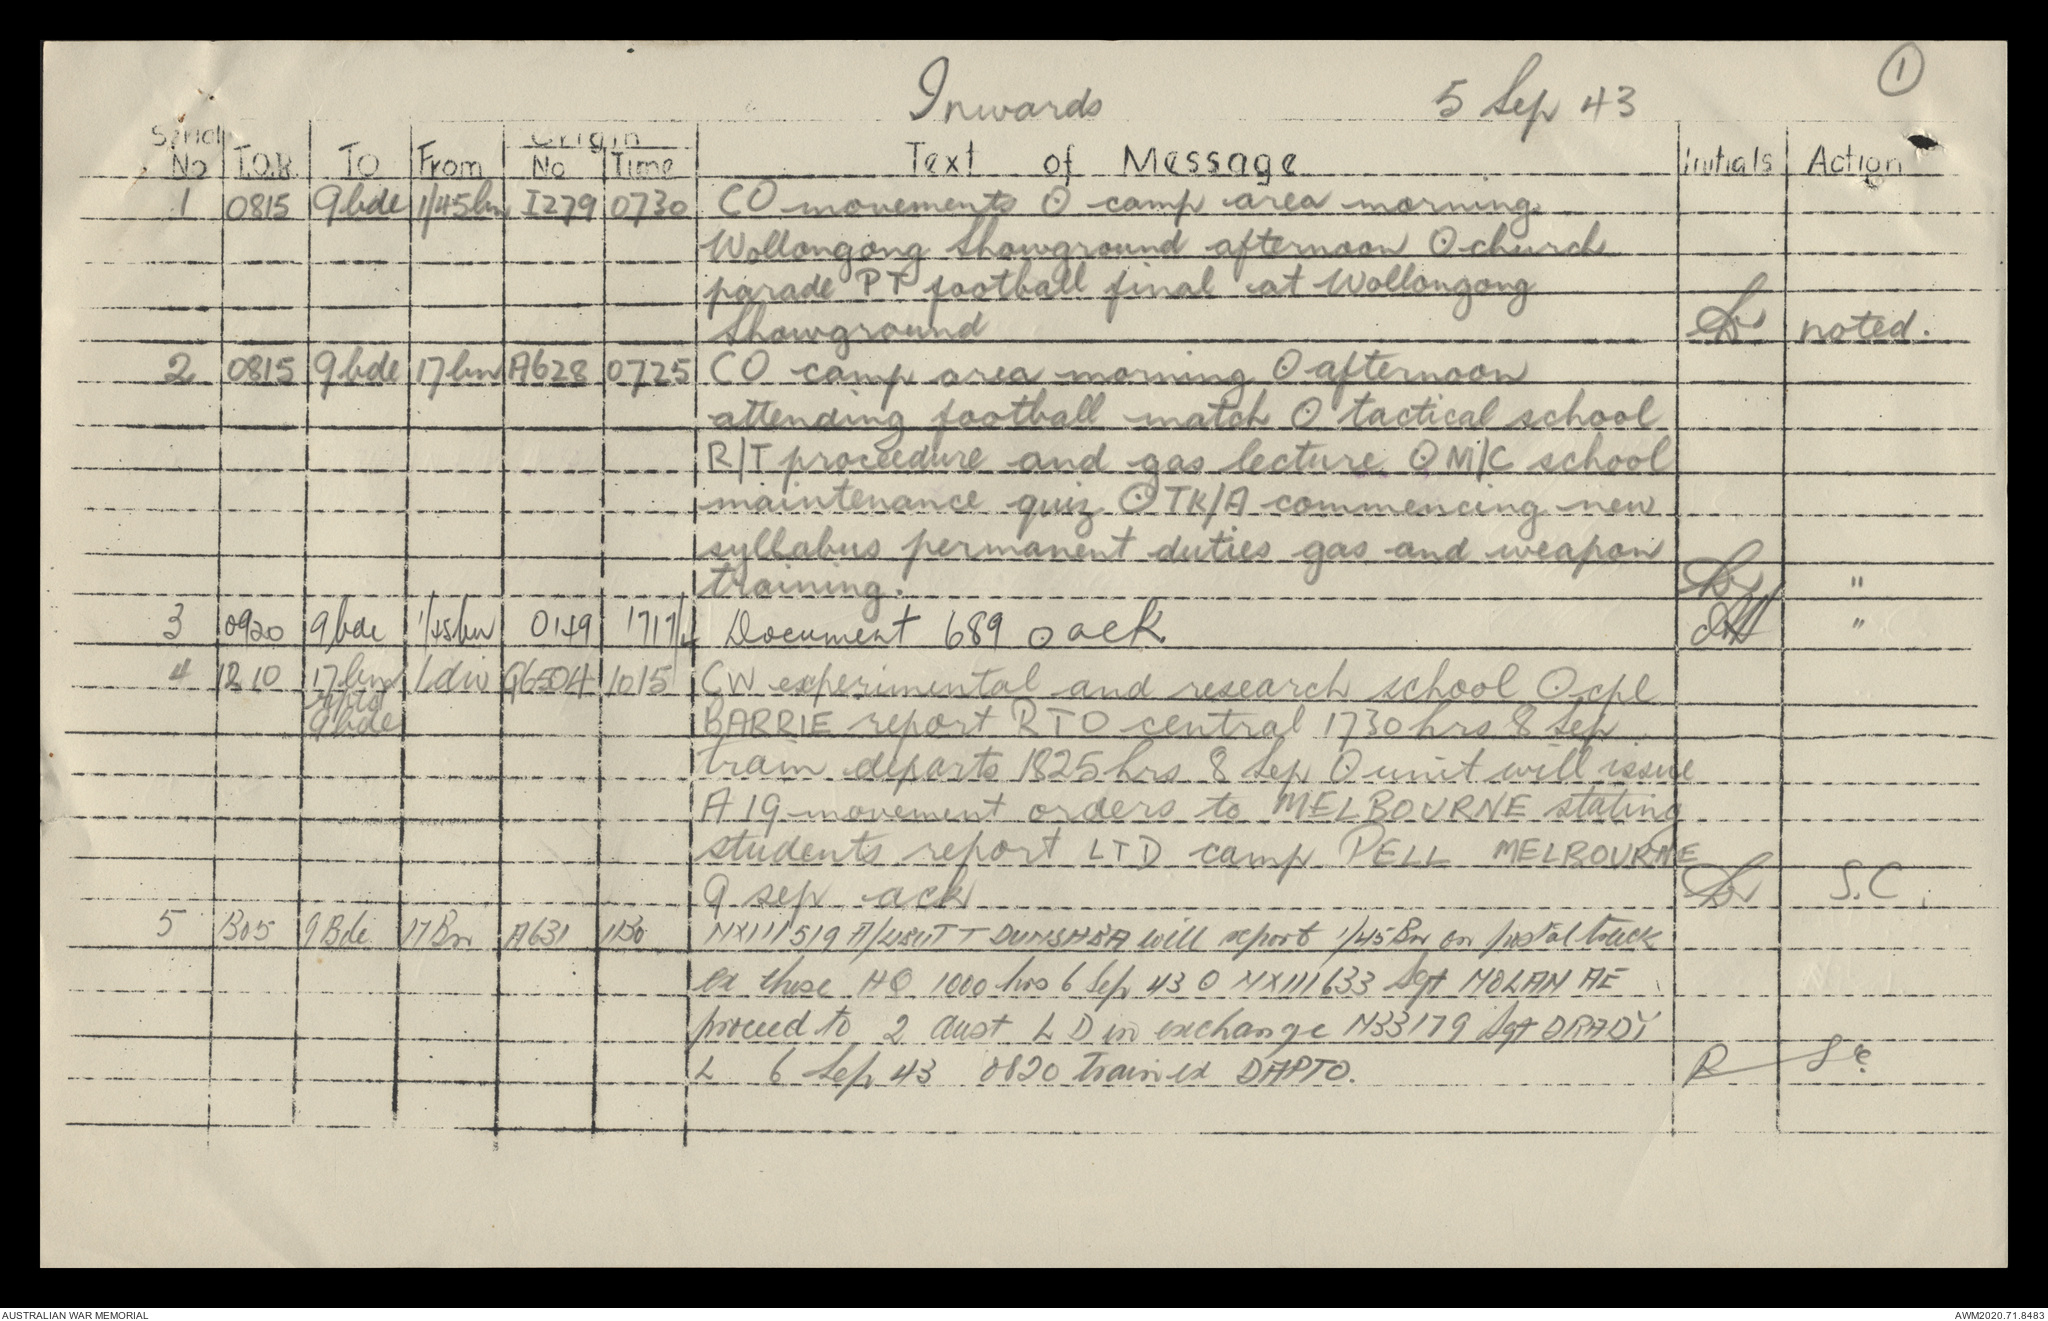 Inwards 5 Sep 43 1
Serial Origin
No T.O.R. TO From No Time Text of Message Initials Action
1 0815 9bde 1/45bn I279 0730 CO movements O camp area morning
Wollongong Showground afternoon O church
parade PT football final at Wollongong
Showground noted.
2 0815 9bde 17bn A628 0725 CO camp area morning O afternoon
attending football match O tactical school
R/T proceedure and gas lecture O M/C school
maintenance quiz O TK/A commencing new
syllabus permanent duties gas and weapon
training. "
3 0920 9bde 1/45bn 0149 1717/4 Document 689 o ack "
4 1210 17bn 1 div G6504 1015 CW experimental and research school O cpl
rptd
9bde BARRIE report RTO central 1730hrs 8 Sep
train departs 1825hrs 8 Sep O unit will issue
A19 movement orders to MELBOURNE stating
students report LTD camp PELL MELBOURNE
9 sep ack S.C
5 1305 9Bde 17Bn A631 1130 NX111519 will report 1/45Bn on postal truck
ex these HQ 1000 hrs 6 Sep 43 O NX111633 Sgt NOLAN AE
proceed to 2 Aust L D in exchange N33179 Sgt
L 6 Sep 43 0820 train ex DAPTO. R Sc
AUSTRALIAN WAR MEMORIAL AWM2020.71.8483